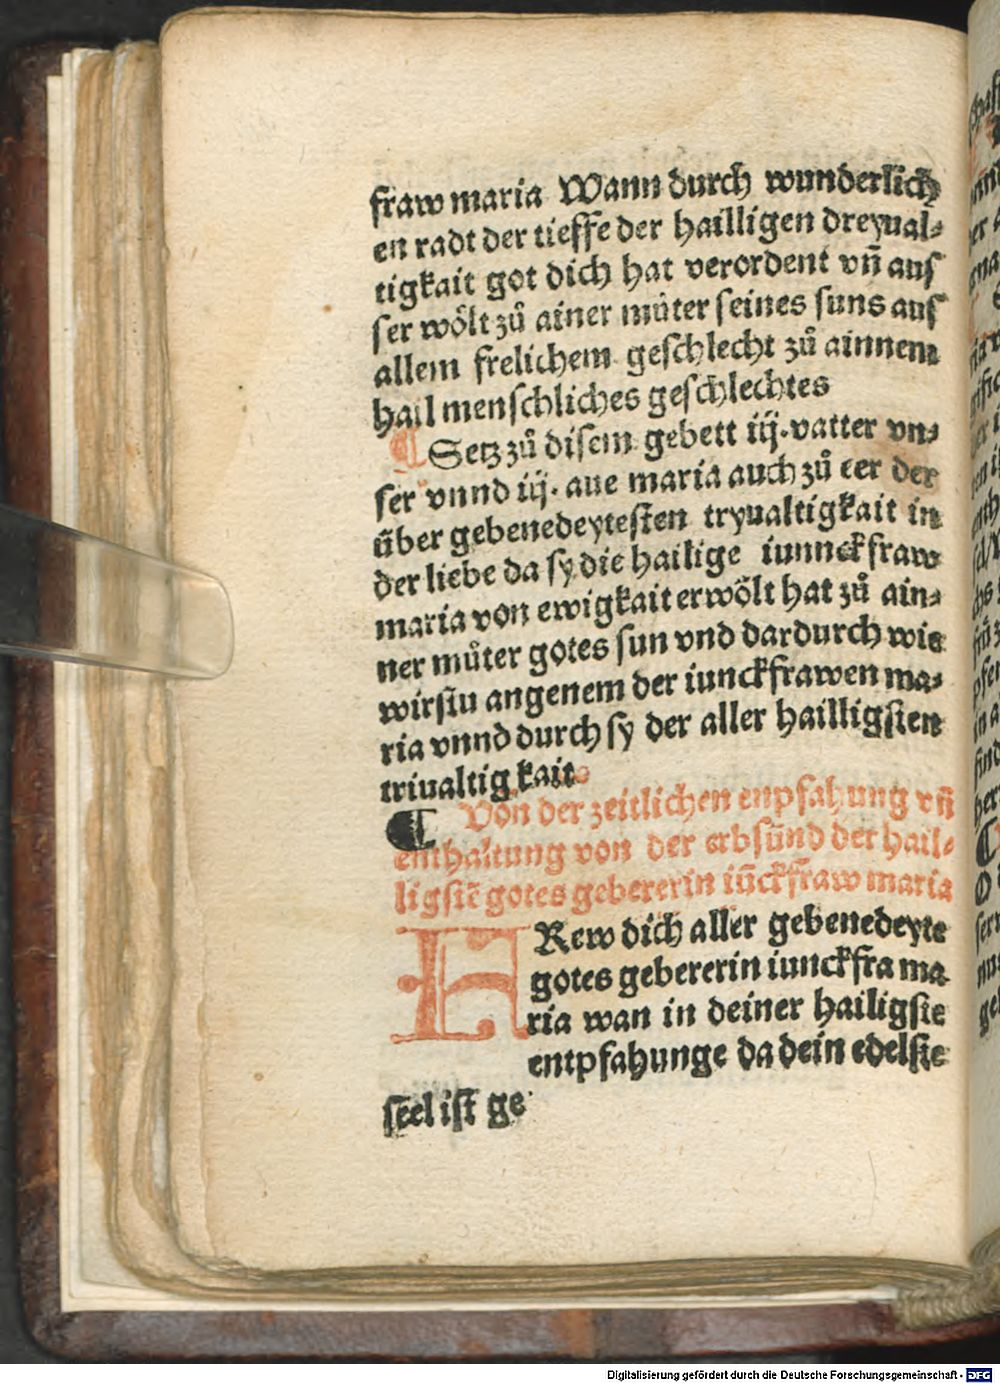 fraw maria Wann durch wunderlich
en radt der tieffe der hailligen dreyual⸗
tigkait got dich hat verordent vn̄ auſ
ſer woͤlt zuͦ ainer muͤter ſeines ſuns auſ
allem frelichem geſchlecht zuͦ ainnem
hail menſchliches geſchlechtes
¶ Setz zuͦ diſem gebett iij. vatter vn⸗
ſer vnnd iij. aue maria auch zuͦ eer der
uͤber gebenedeyteſten tryualtigkait in
der liebe da ſy die hailige iunnckfraw
maria von ewigkait erwoͤlt hat zuͦ ain⸗
ner muͦter gotes ſun vnd dardurch wie
wirſtu angenem der iunckfrawen ma⸗
ria vnnd durch ſy der aller hailligſten
triualtig kait
¶ Von der zeitlichen enpfahung vn̄
enthaltung von der erbſünd der hail⸗
ligſtē gotes gebererin iūckfraw maria
FRew dich aller gebenedeyte
gotes gebererin iunckfra ma
ria wan in deiner hailigſte
entpfahunge da dein edelſte
ſeel iſt ge
Digitalisierung gefördert durch die Deutsche Forschungsgemeinschaft - DFG